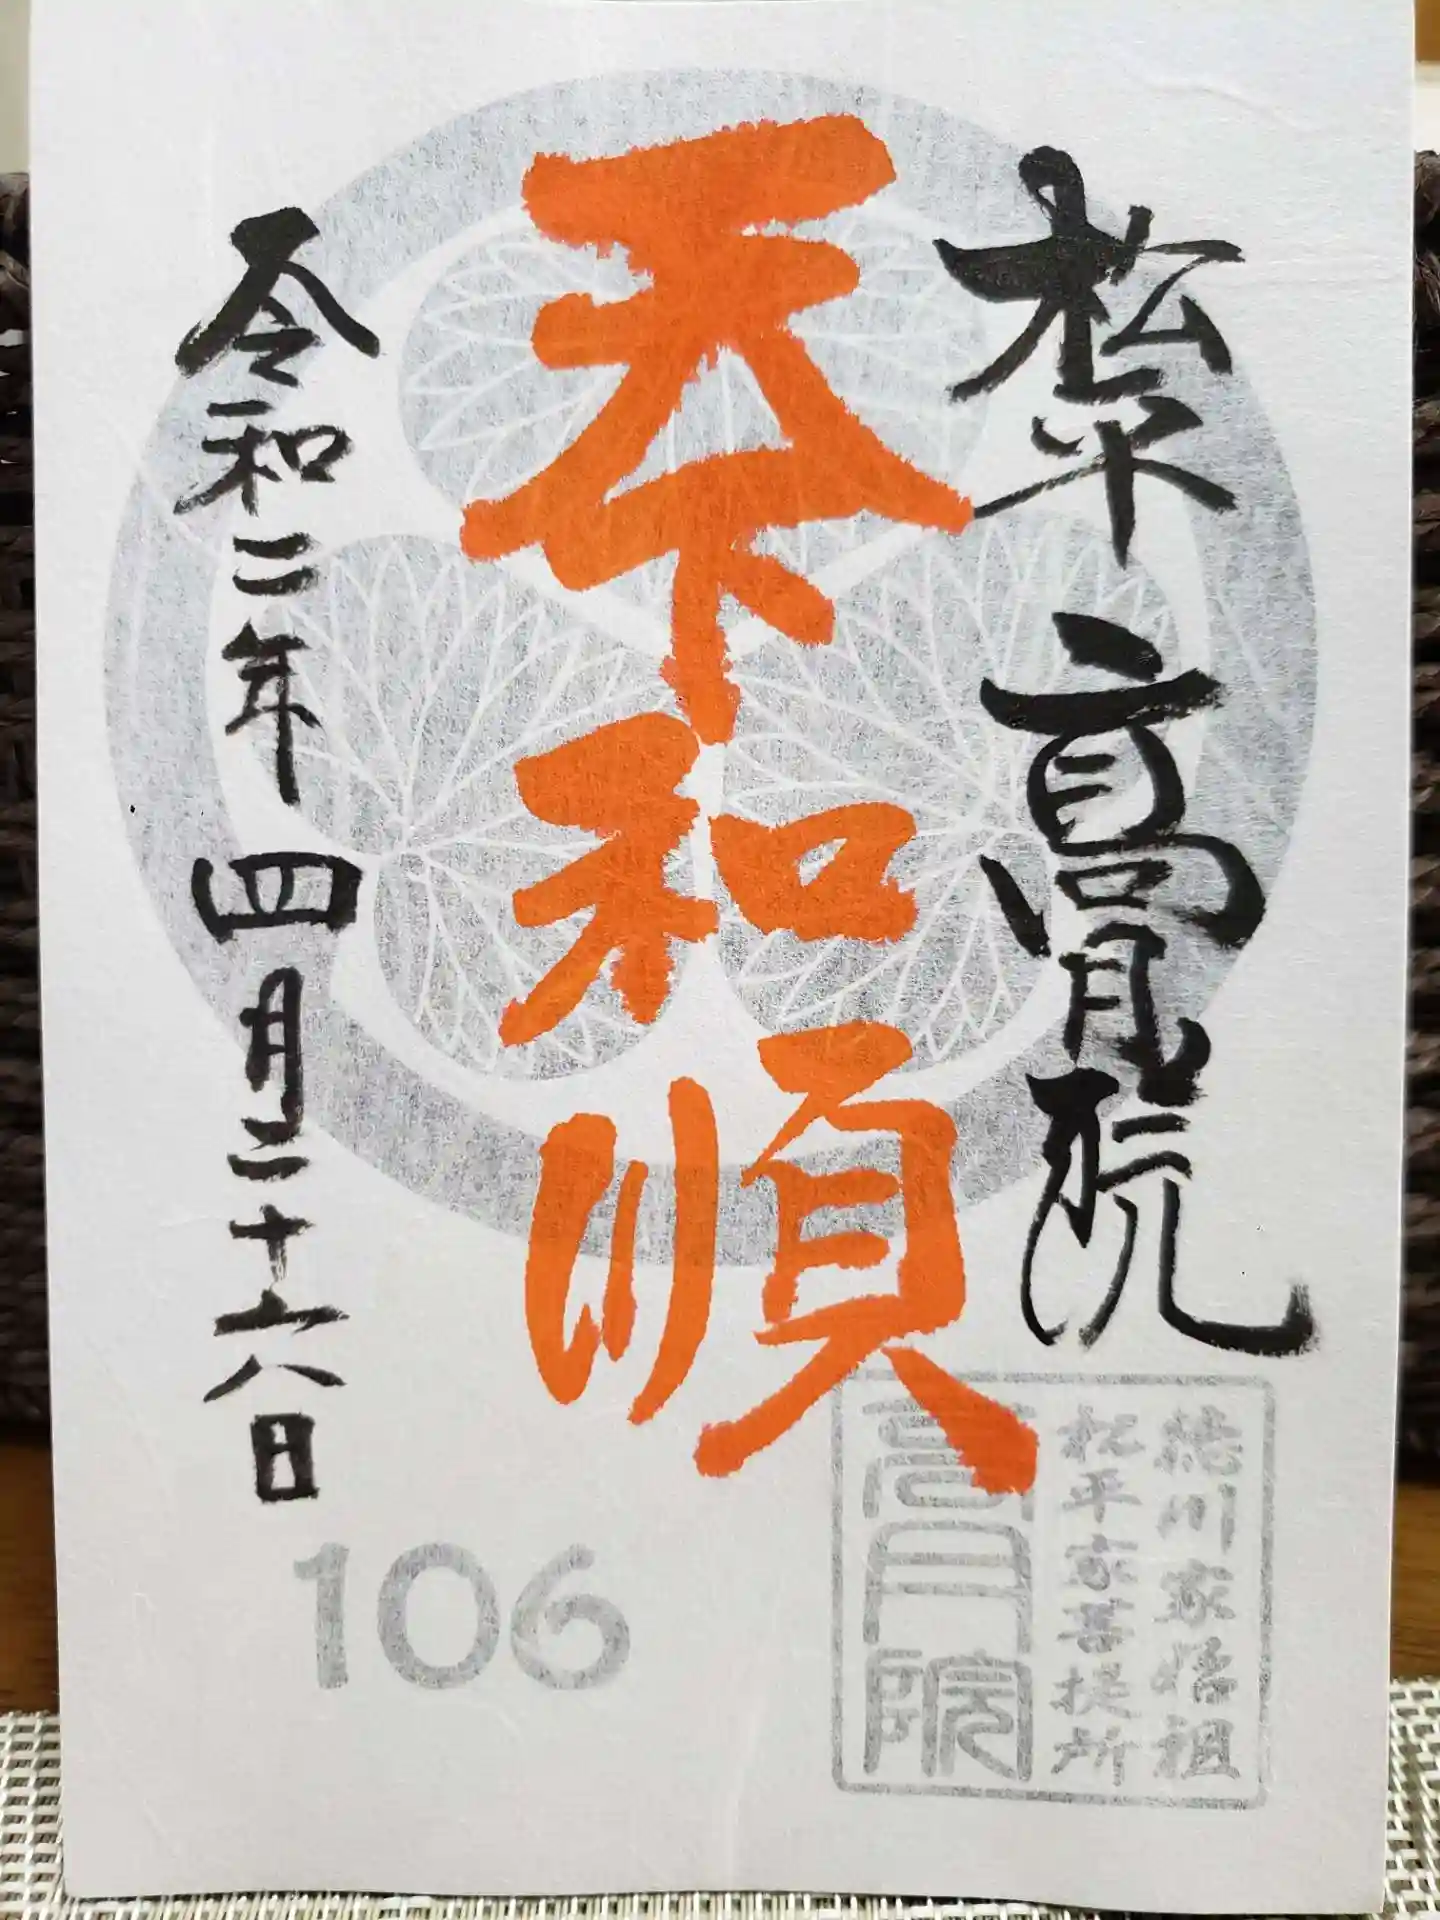 松平高月院
天下和順
令和二年四月二十六日
106
徳川家始祖
松平家菩提所
高月院